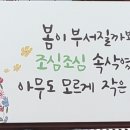 봄이 부서질까봐
조심조심 속삭였
아무도 모르게 작은